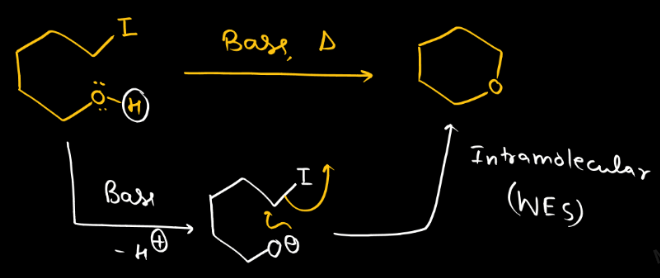 I
Base, Δ
Ö-H
O
Base
- H⊕
I
O⊖
Intramolecular
(WES)